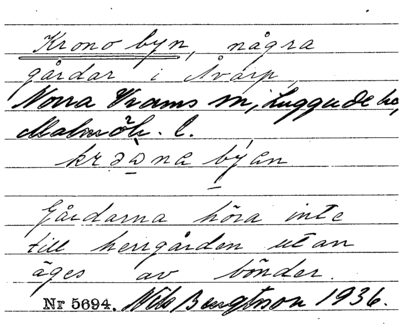 Krono byn, några
gårdar i Åvarp,
Norra Vrams sn, Luggude hd,
Malmöh. l.
krɔ̀na býan
Gårdarna höra inte
till herrgården utan
äges av bönder.
Nr 5694. Nils Bengtsson 1936.